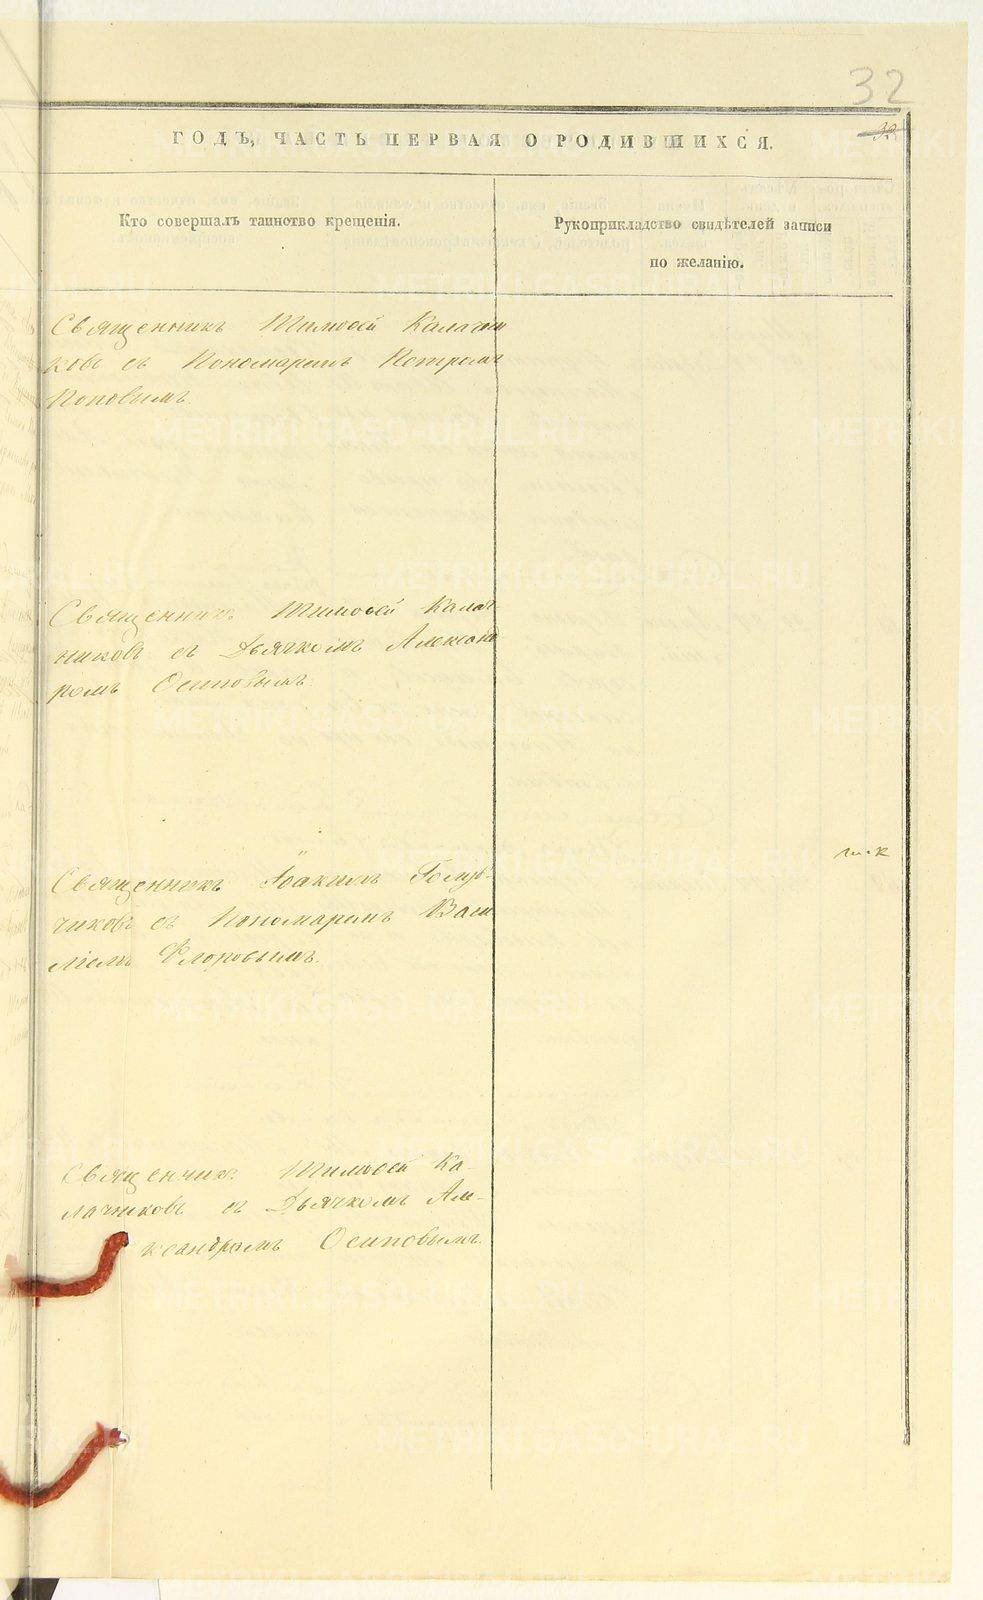 32
32
ГОДЪ, ЧАСТЬ ПЕРВАЯ О РОДИВШИХСЯ.
Кто совершалъ таинство крещенія.
Рукоприкладство свидѣтелей записи
по желанію.
Священникъ Тимоѳей Калачни
ковъ съ Пономаремъ Петромъ
Поповымъ.
Священникъ Тимоѳей Калач-
никовъ съ Дьячкомъ Александ
ромъ Осиповымъ.
Священникъ Іоакимъ Голуб-
чиковъ съ Пономаремъ Васи
ліемъ Флоровымъ.
Священникъ Тимоѳей Ка-
лачниковъ съ Дьячкомъ Але-
ксандромъ Осиповымъ.
METRIKI.GASO-URAL.RU